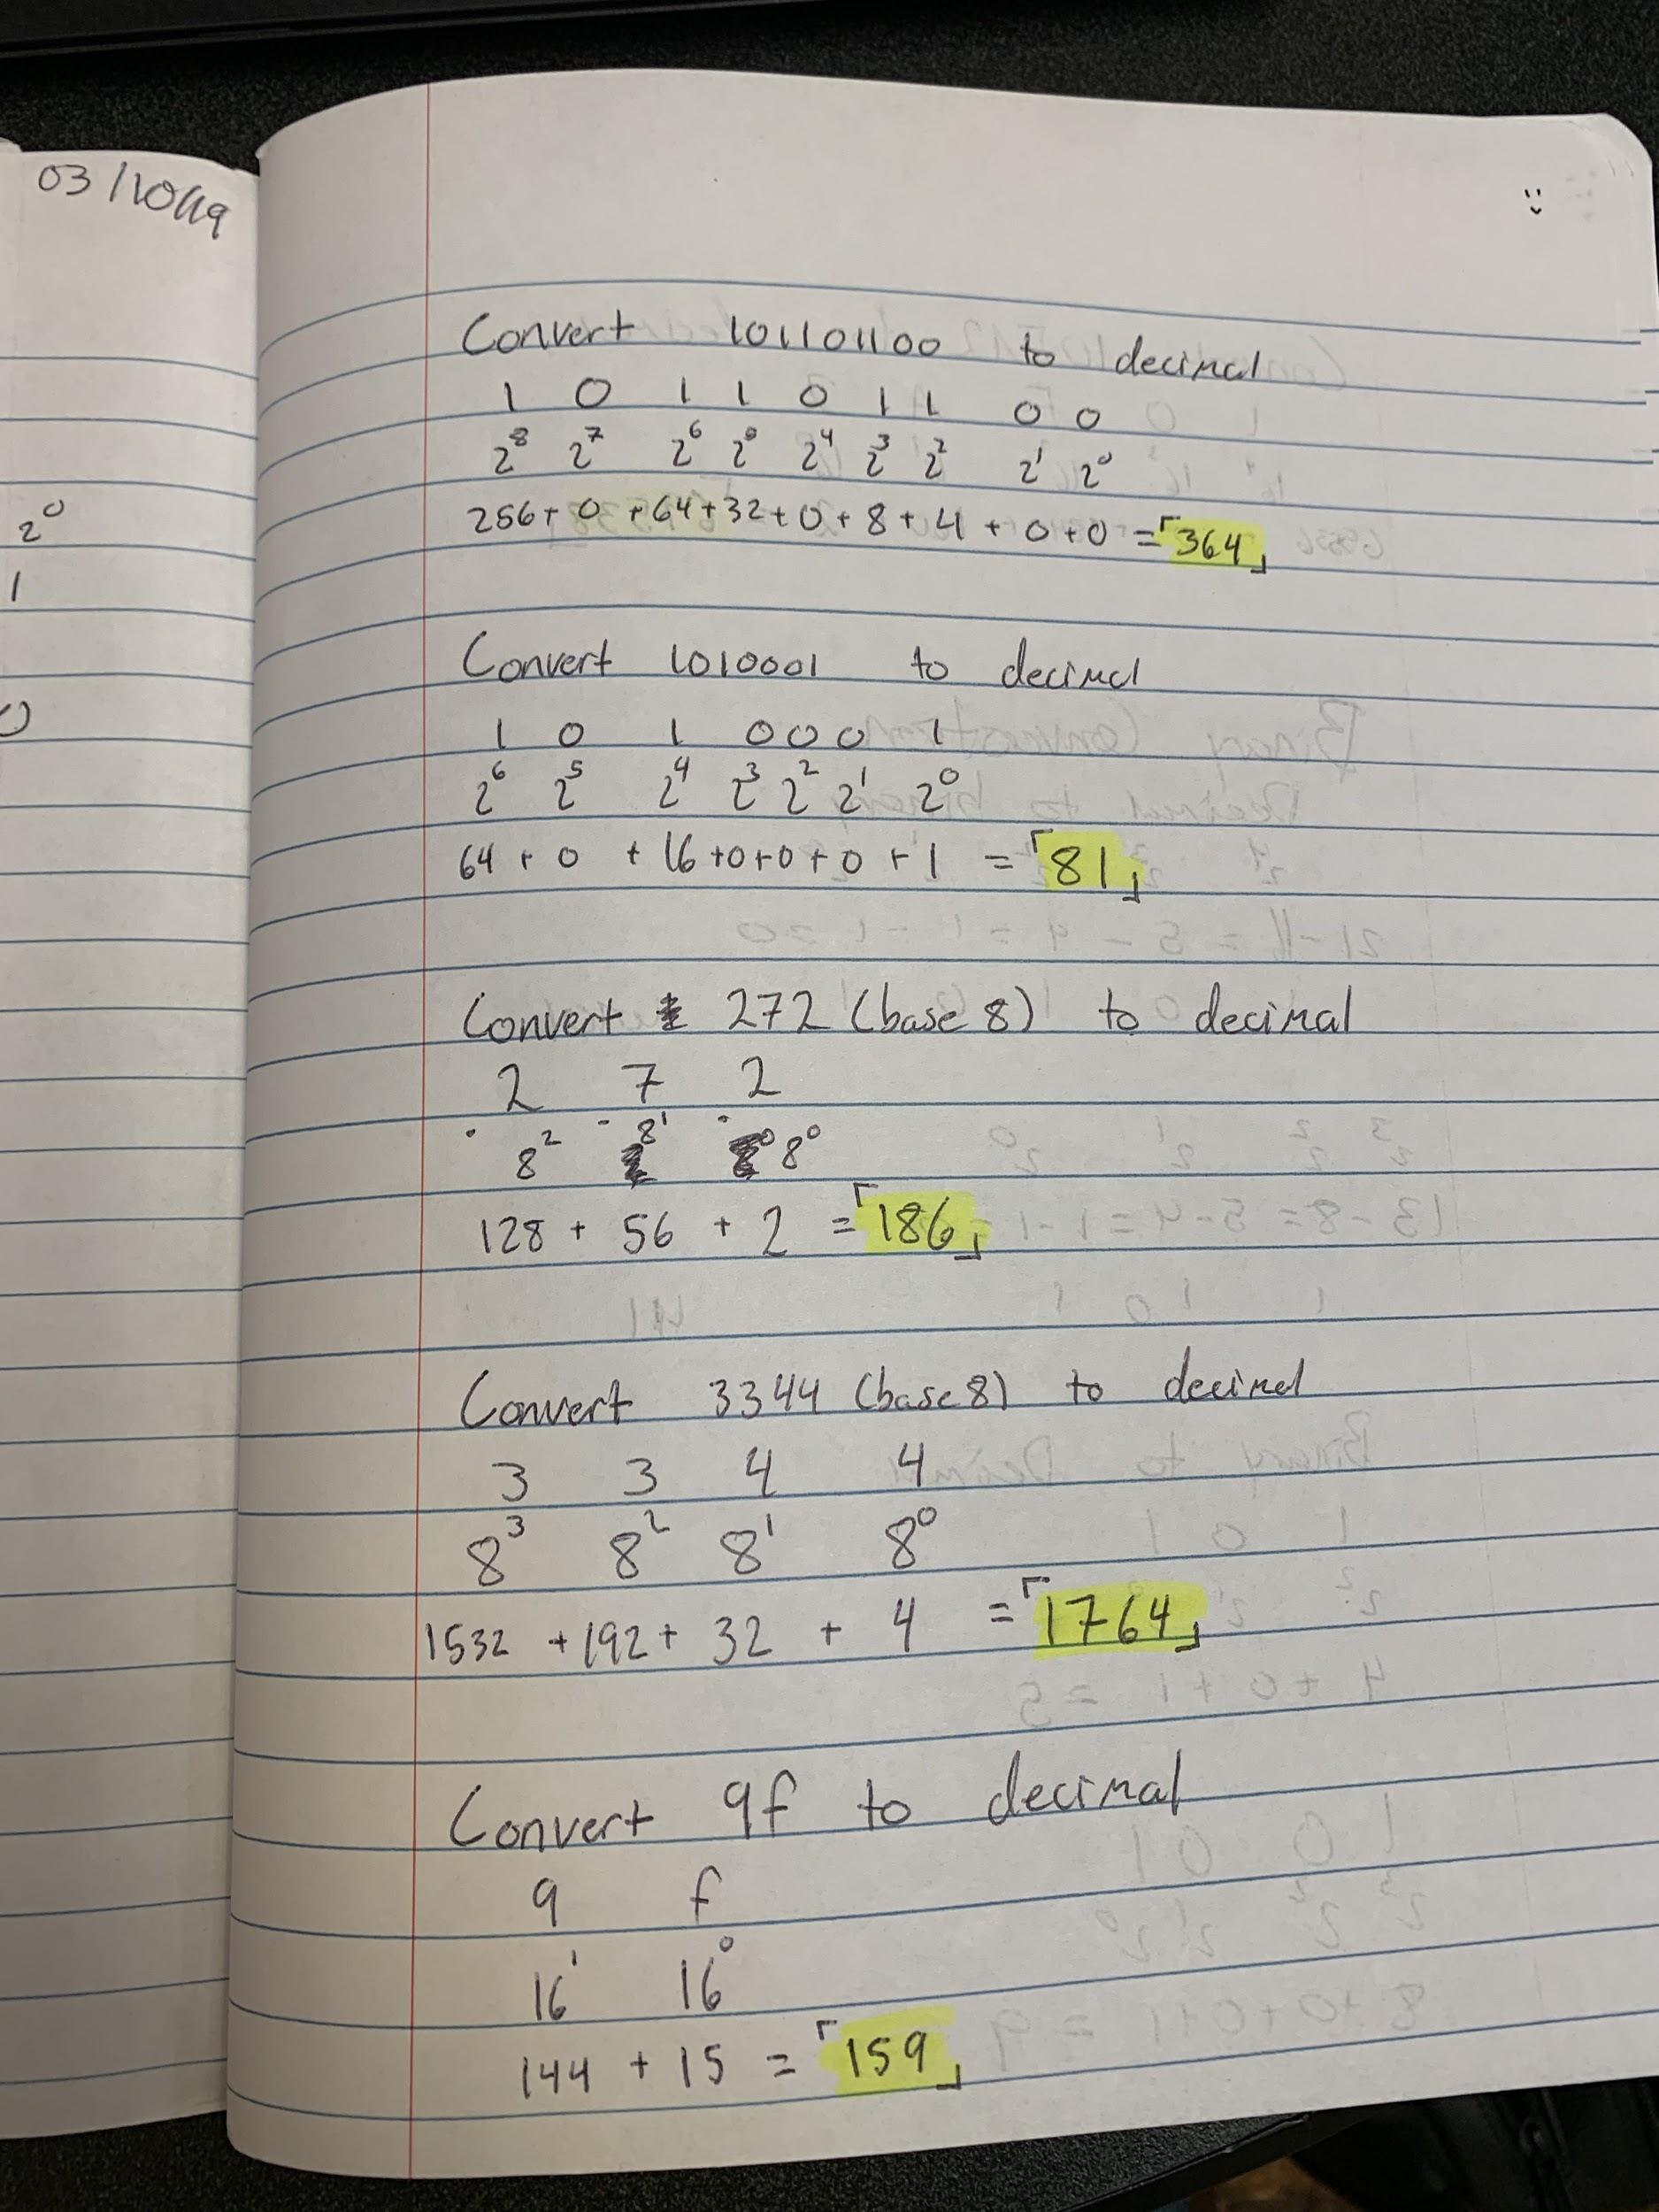 2⁰
1
0
Convert 101101100 to decimal
1 0 1 1 0 1 1 0 0
2⁸ 2⁷ 2⁶ 2⁵ 2⁴ 2³ 2² 2¹ 2⁰
256 + 0 + 64 + 32 + 0 + 8 + 4 + 0 + 0 = 「364」
Convert 1010001 to decimal
1 0 1 0 0 0 1
2⁶ 2⁵ 2⁴ 2³ 2² 2¹ 2⁰
64 + 0 + 16 + 0 + 0 + 0 + 1 = 「81」
Convert 272 (base 8) to decimal
2 7 2
8² 8¹ 8⁰
128 + 56 + 2 = 「186」
Convert 3344 (base 8) to decimal
3 3 4 4
8³ 8² 8¹ 8⁰
1532 + 192 + 32 + 4 = 「1764」
Convert 9f to decimal
9 f
16¹ 16⁰
144 + 15 = 「159」